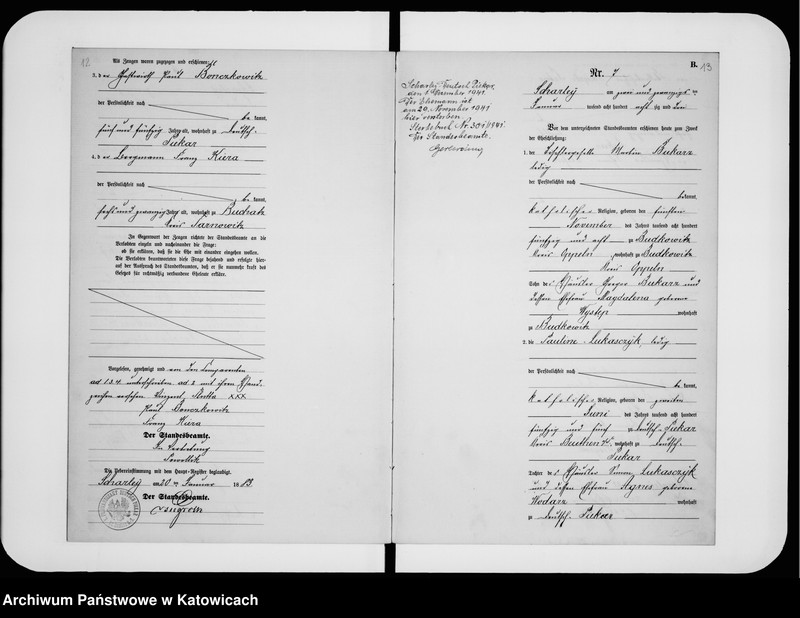 12
Als Zeugen waren zugezogen und erschienen:
3. der Gastwirth Paul Bonczkowitz
der Persönlichkeit nach
be kannt,
fünf und fünfzig Jahre alt, wohnhaft zu Deutsch-
Piekar
4. der Bergmann Franz Kiera
der Persönlichkeit nach
be kannt,
sechs und zwanzig Jahre alt, wohnhaft zu
Kreis Tarnowitz
In Gegenwart der Zeugen richtete der Standesbeamte an die
Verlobten einzeln und nacheinander die Frage:
ob sie erklären, daß sie die Ehe mit einander eingehen wollen.
Die Verlobten beantworteten diese Frage bejahend und erfolgte hier-
auf der Ausspruch des Standesbeamten, daß er sie nunmehr kraft des
Gesetzes für rechtmäßig verbundene Eheleute erkläre.
Vorgelesen, genehmigt und von den Comparenten
ad 1.3.4. unterschrieben ad 2 mit ihrem Hand-
zeichen versehen Vincent XXX
Paul Bonczkowitz
Franz Kiera
Der Standesbeamte.
In Vertretung
Die Uebereinstimmung mit dem Haupt-Register beglaubigt.
Scharley am 20 ten Januar 1883
Der Standesbeamte.
B.
13
Scharley, Deutsch Piekar,
den 1. Dezember 1941
Der Ehemann ist
am 20. November 1941
hier verstorben
Sterbebuch Nr. 301/1941.
Der Standesbeamte.
Nr. 7
Scharley am zwei und zwanzigsten
Januar tausend acht hundert acht zig und drei
Vor dem unterzeichneten Standesbeamten erschienen heute zum Zweck
der Eheschließung:
1. der Martin Bukarz
ledig
der Persönlichkeit nach
be kannt,
katholischer Religion, geboren den fünften
November des Jahres tausend acht hundert
fünfzig und acht zu Budkowitz
Kreis Oppeln, wohnhaft zu Budkowitz
Kreis Oppeln
Sohn des Häusler George Bukarz und
dessen Ehefrau Magdalena geborene
Wystep wohnhaft
zu Budkowitz
2. die Pauline Lukasczyk, ledig
der Persönlichkeit nach
be kannt,
katholischer Religion, geboren den zweiten
Juni des Jahres tausend acht hundert
fünfzig und fünf zu Deutsch-Piekar
Kreis Beuthen O/S, wohnhaft zu Deutsch-
Piekar
Tochter des Häusler Simon Lukasczyk
und dessen Ehefrau Agnes geborene
Wodarz wohnhaft
zu Deutsch-Piekar
Archiwum Państwowe w Katowicach